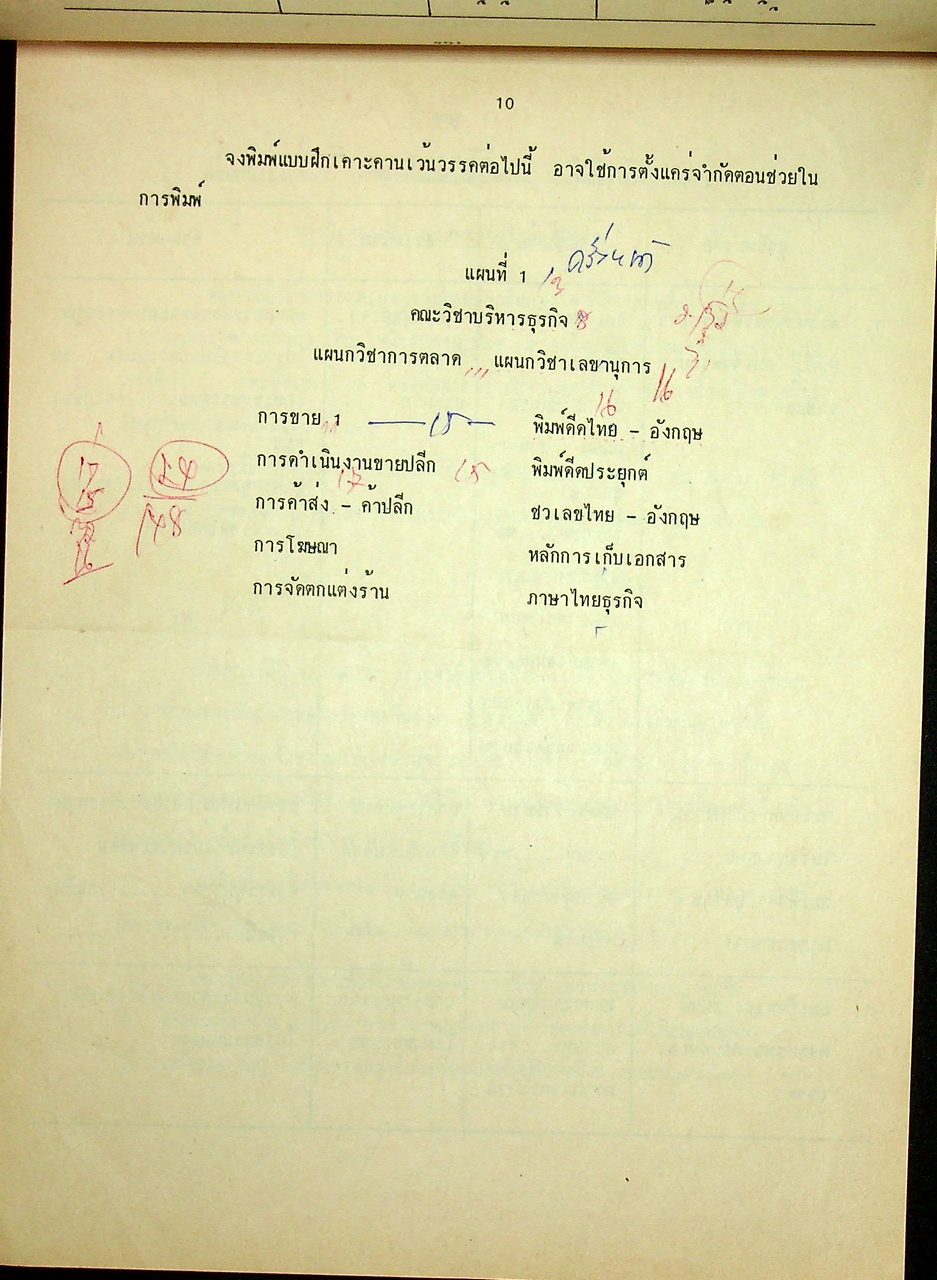 10
จงพิมพ์แบบฝึกเคาะคานเว้นวรรคต่อไปนี้ อาจใช้การตั้งแคร่จำกัดตอนช่วยใน
การพิมพ์
แผนที่ 1 13
คณะวิชาบริหารธุรกิจ 8
แผนกวิชาการตลาด แผนกวิชาเลขานุการ
16
16
การขาย 1 15 พิมพ์ดีดไทย - อังกฤษ
การดำเนินงานขายปลีก 15 พิมพ์ดีดประยุกต์
17
การค้าส่ง - ค้าปลีก ชวเลขไทย - อังกฤษ
การโฆษณา หลักการเก็บเอกสาร
การจัดตกแต่งร้าน ภาษาไทยธุรกิจ
17
15
24
48